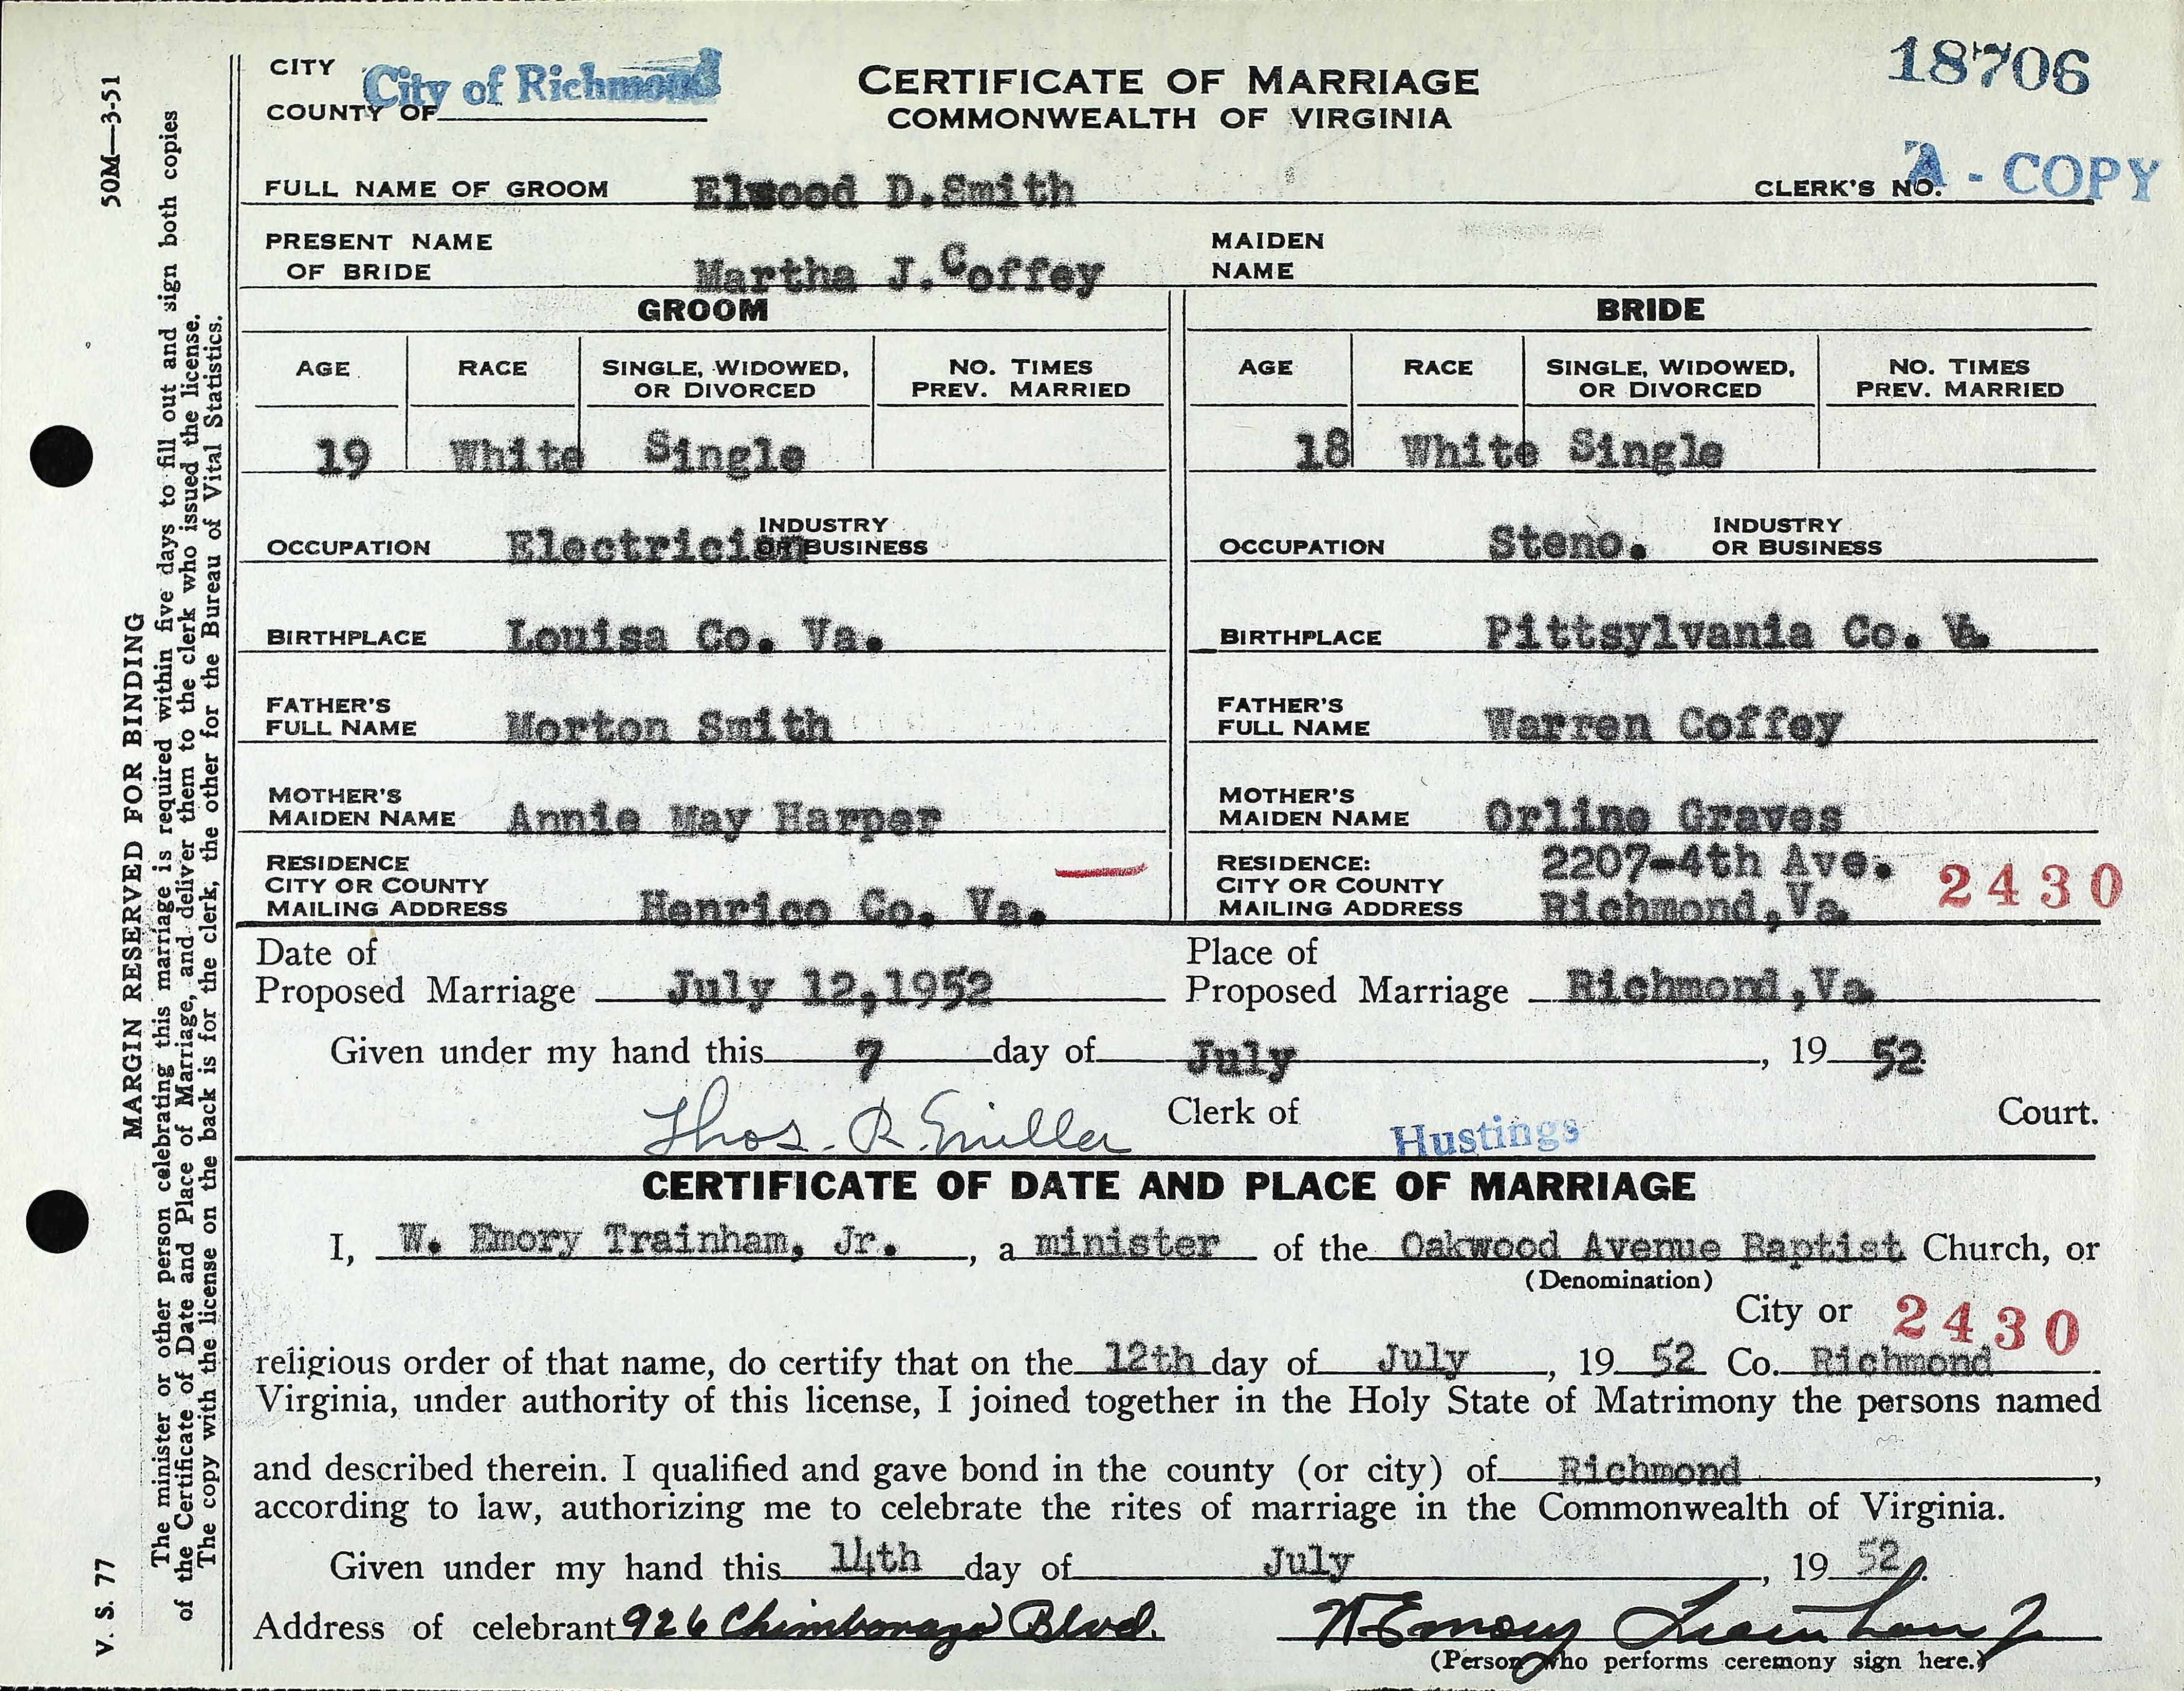 CITY
City of Richmond
COUNTY OF
CERTIFICATE OF MARRIAGE
COMMONWEALTH OF VIRGINIA
18706
A - COPY
FULL NAME OF GROOM Elwood D.Smith CLERK'S NO.
PRESENT NAME OF BRIDE Martha J.Coffey MAIDEN NAME
GROOM
BRIDE
AGE RACE SINGLE, WIDOWED, OR DIVORCED NO. TIMES PREV. MARRIED
AGE RACE SINGLE, WIDOWED, OR DIVORCED NO. TIMES PREV. MARRIED
19 White Single
18 White Single
OCCUPATION Electrician INDUSTRY OR BUSINESS
OCCUPATION Steno. INDUSTRY OR BUSINESS
BIRTHPLACE Louisa Co. Va.
BIRTHPLACE Pittsylvania Co. Va.
FATHER'S FULL NAME Morton Smith
FATHER'S FULL NAME Warren Coffey
MOTHER'S MAIDEN NAME Annie May Harper
MOTHER'S MAIDEN NAME Orline Graves
RESIDENCE
CITY OR COUNTY
MAILING ADDRESS Henrico Co. Va.
RESIDENCE: 2207-4th Ave.
CITY OR COUNTY 2430
MAILING ADDRESS Richmond,Va.
Date of
Proposed Marriage July 12,1952
Place of
Proposed Marriage Richmond,Va.
Given under my hand this 7 day of July, 19 52
Thos. R. Miller Clerk of Hustings Court.
CERTIFICATE OF DATE AND PLACE OF MARRIAGE
I, W. Emory Trainham, Jr., a minister of the Oakwood Avenue Baptist Church, or
(Denomination)
City or 2430
religious order of that name, do certify that on the 12th day of July, 19 52 Co. Richmond
Virginia, under authority of this license, I joined together in the Holy State of Matrimony the persons named
and described therein. I qualified and gave bond in the county (or city) of Richmond,
according to law, authorizing me to celebrate the rites of marriage in the Commonwealth of Virginia.
Given under my hand this 14th day of July, 19 52.
Address of celebrant 926 Chimborazo Blvd. W Emory Trainham Jr
(Person who performs ceremony sign here.)
V. S. 77 50M—3-51
MARGIN RESERVED FOR BINDING
The minister or other person celebrating this marriage is required within five days to fill out and sign both copies
of the Certificate of Date and Place of Marriage, and deliver them to the clerk who issued the license.
The copy with the license on the back is for the clerk, the other for the Bureau of Vital Statistics.